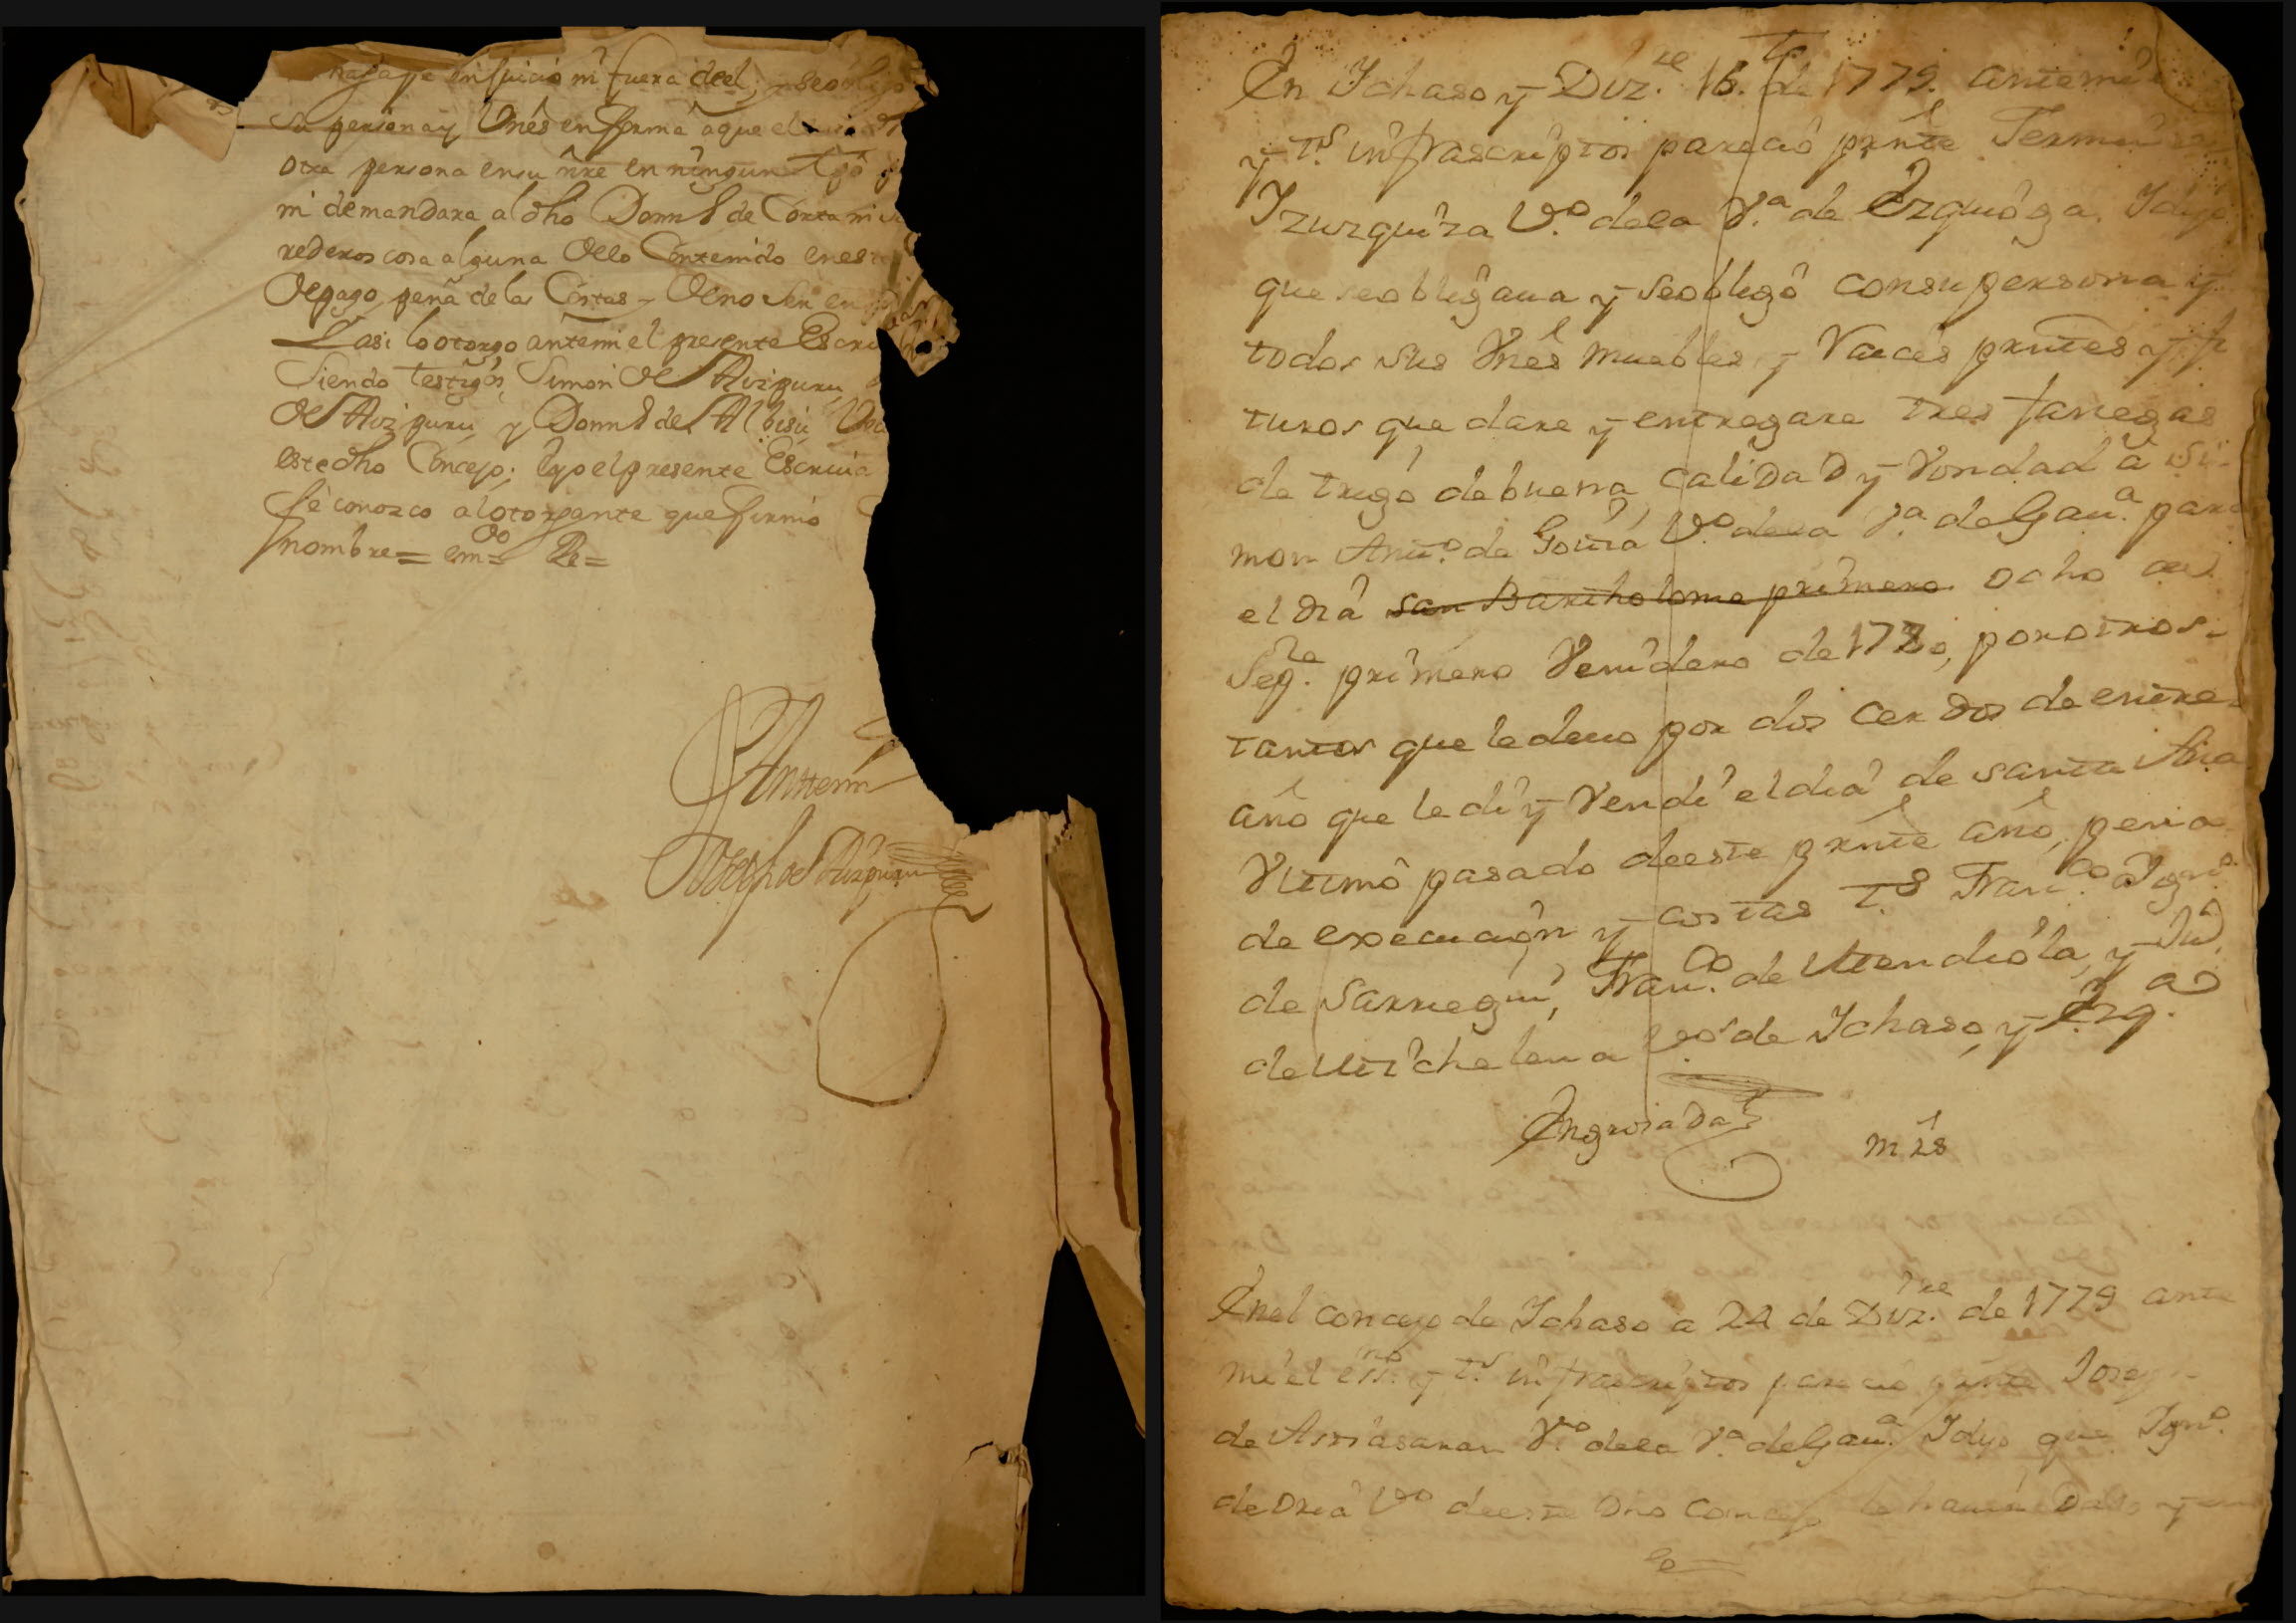 haga pe en juicio ni fuera deel; y se obligo
su persona y Vnês en forma a que el
otra persona en su nr̃e en ningun tpô
ni demandara al dho Domˢ de Corta ni
rederos cosa alguna de lo Contenido en es
de pago, pena de las Costas y de no ser en
Y asi lo otorgo ante mi el presente Escri
siendo testigos, Simon de Aizpuru
de Aizpuru, y Domˢ de Albisu
este dho Concejo: E yo el presente Escriua
fe conozco al otorgante que firmó
nombre = em.do = Re =
Ante mi
Joseph de Aizpuru
En Ichaso y Diz.re 16. de 1779. ante mi
y t.s infrascriptos parecio prnte
Izurquiza V.o de la V.a de Ezquioga Y dijo
que se obligaua y se obligô con su persona y
todos sus Vnês muebles y Raices prntes y fu
turos que dare y entregare tres fanegas
de trigo de buena calidad y Vondad â Si-
mon Ant.o de Goitiâ V.o de la V.a de Gau.a para
el diâ san Bartholome primero ocho de
Sep.re primero Venidero de 1780, por otros
tantos que le deuo por dos cerdos de entre
año que le dî y Vendî el diâ de santa Ana
Vltimô pasado de este prnte año, pena
de execucion y costas t.s Fran.co Ign.o
de Sarriegui, Fran.co de Mendiôla, y Ju.
de Michelena V.os de Ichaso, y Ezq.a
Engrosada
mrs
En el concejo de Ichaso a 24 de Diz.re de 1779 ante
mî el ess.no y t.s infrascriptos parecio prnte Josep
de Arriasaran V.o de la V.a de Gau.a Y dijo que Ign.o
de Oriâ V.o de este dho Concejo le hauia dado y